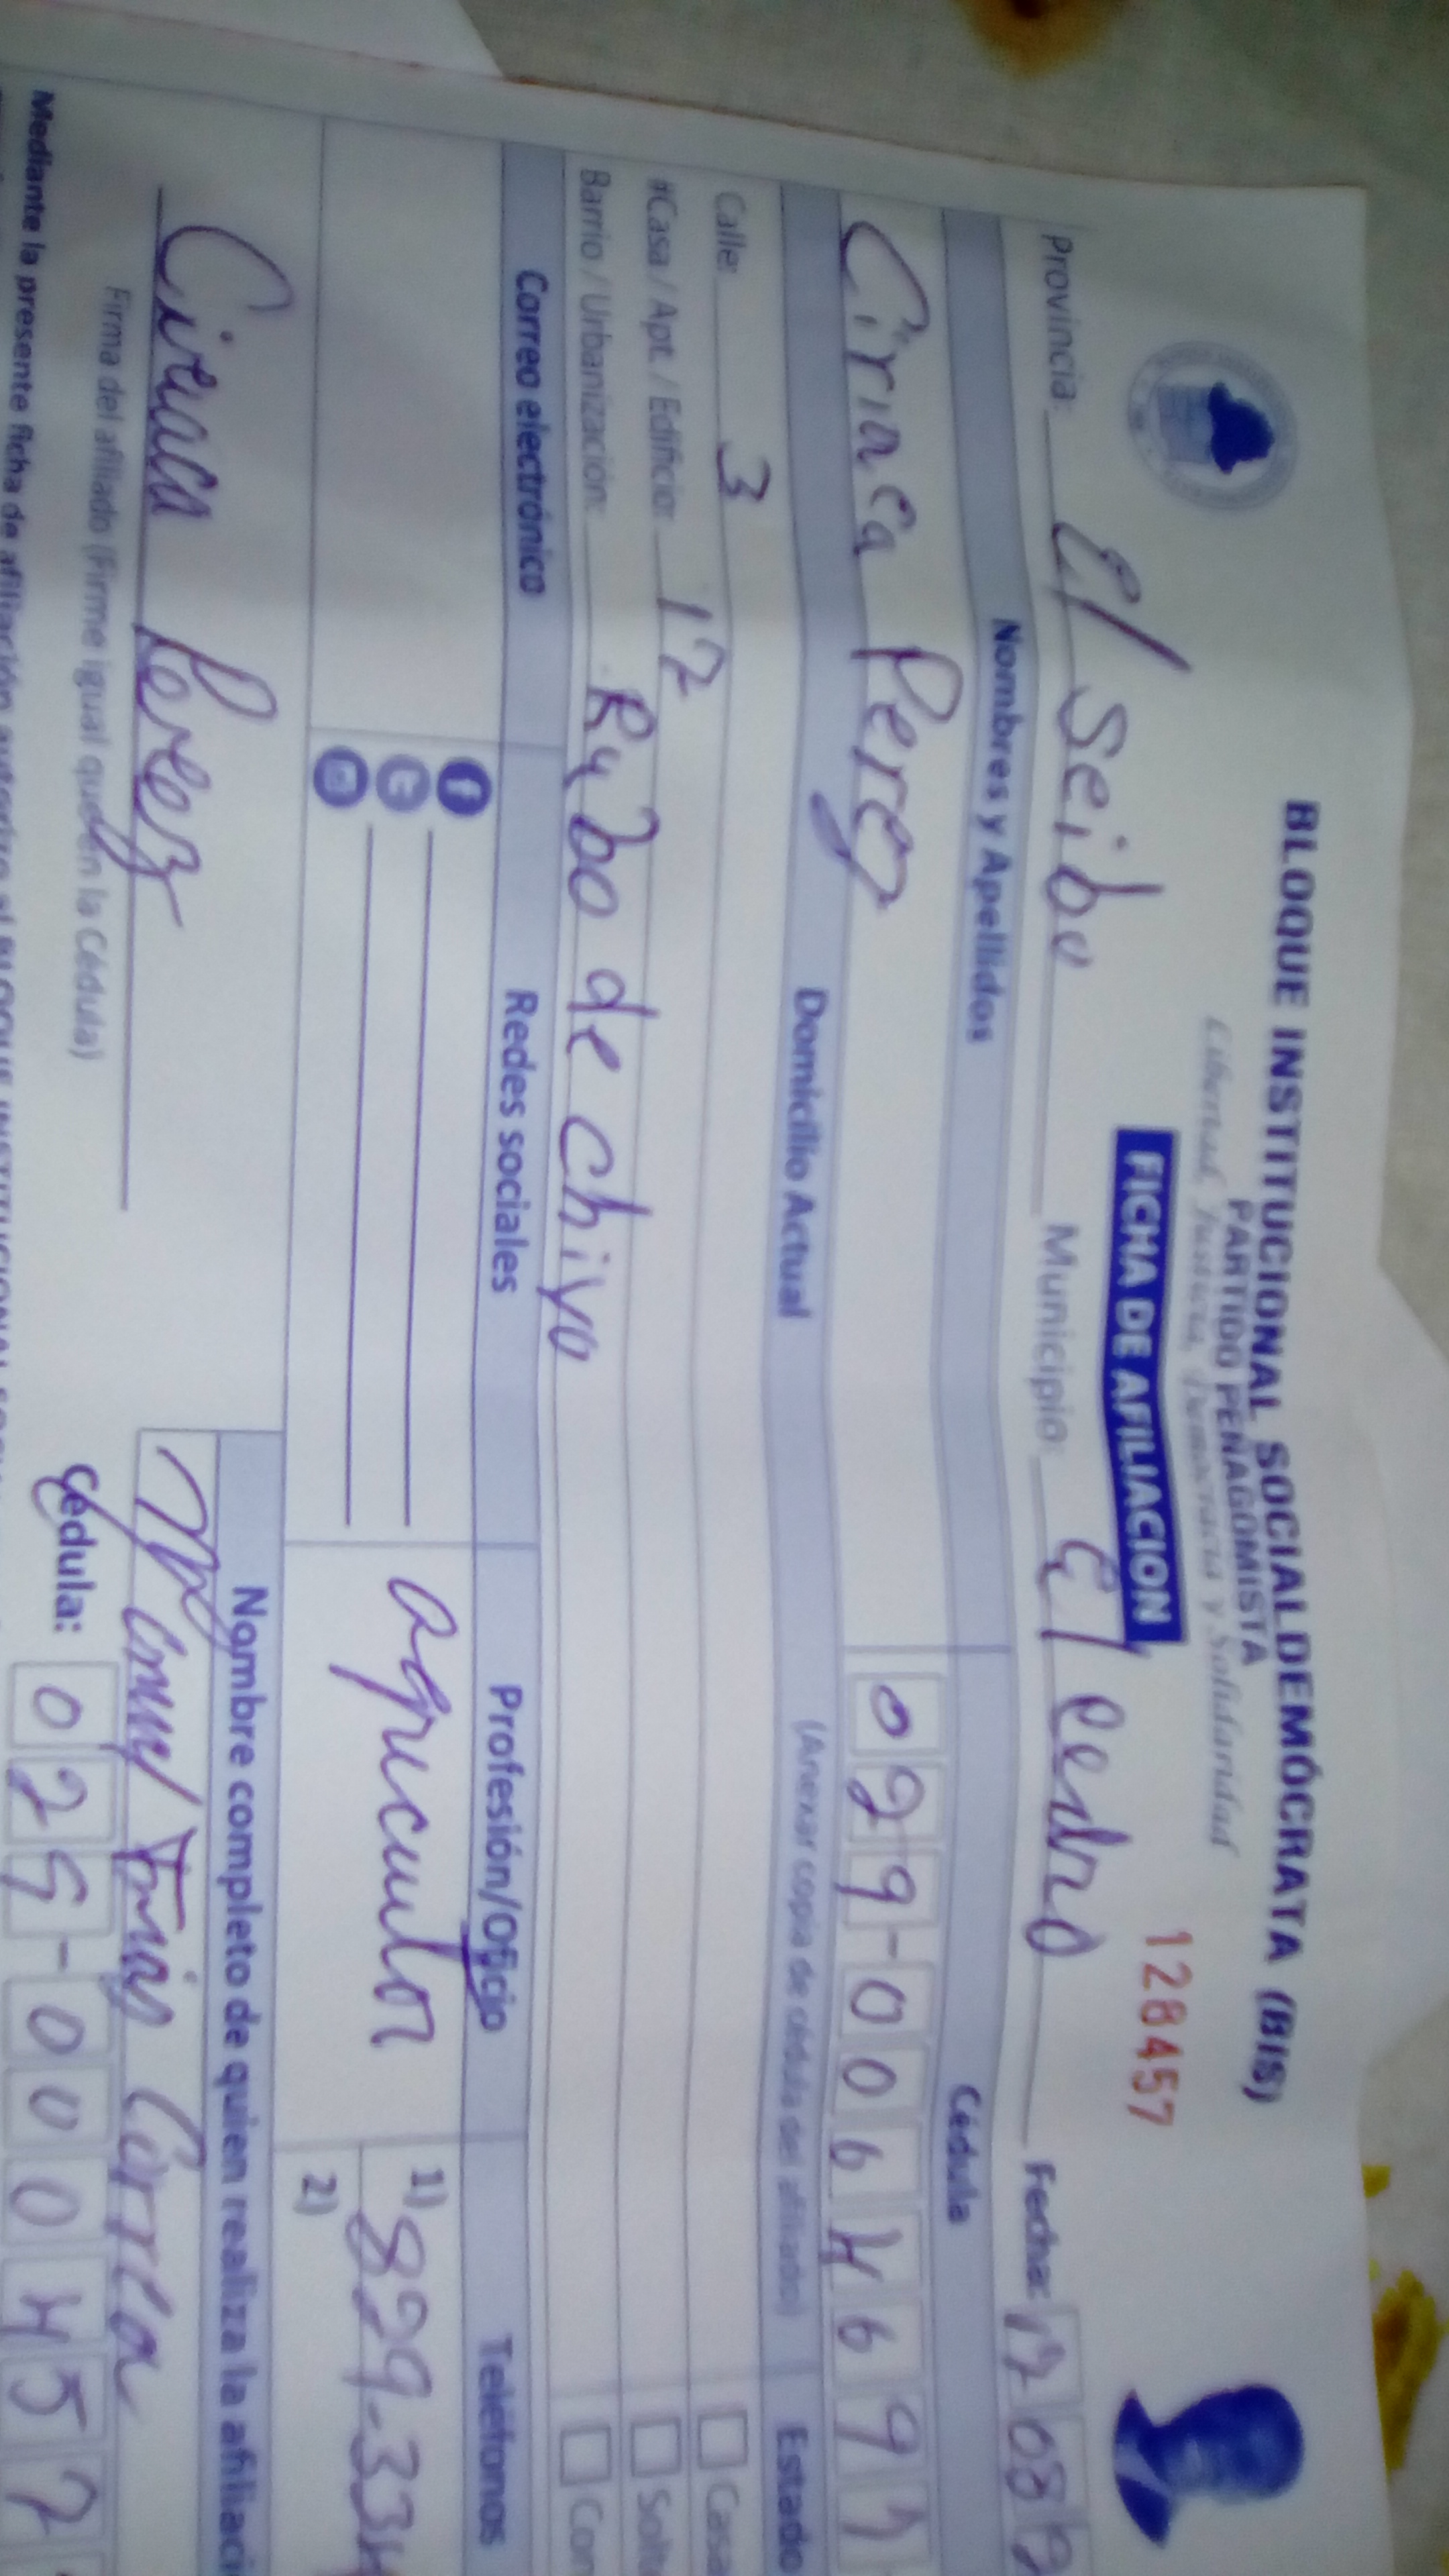 BLOQUE INSTITUCIONAL SOCIALDEMÓCRATA (BIS)
PARTIDO PEÑAGOMISTA
Libertad, Justicia, Democracia y Solidaridad
FICHA DE AFILIACION
128457
Provincia: El Seibo Municipio: El Cedro Fecha: 17 08
Nombres y Apellidos Cédula
Ciriaca Perez 029-006469
Domicilio Actual (Anexar copia de cédula del afiliado) Estado
Calle: 3 Casa
#Casa / Apt. / Edificio: 12 Solte
Barrio / Urbanización: Rabo de Chivo Con
Correo electrónico Redes sociales Profesión/Oficio Teléfonos
agricultor
1) 829-334
2)
Ciriaca Perez
Firma del afiliado (Firme igual que en la Cédula)
Nombre completo de quien realiza la afiliaci
Cédula: 029-000457
Mediante la presente ficha de afiliación autorizo al BLOQUE INSTITUCIONAL